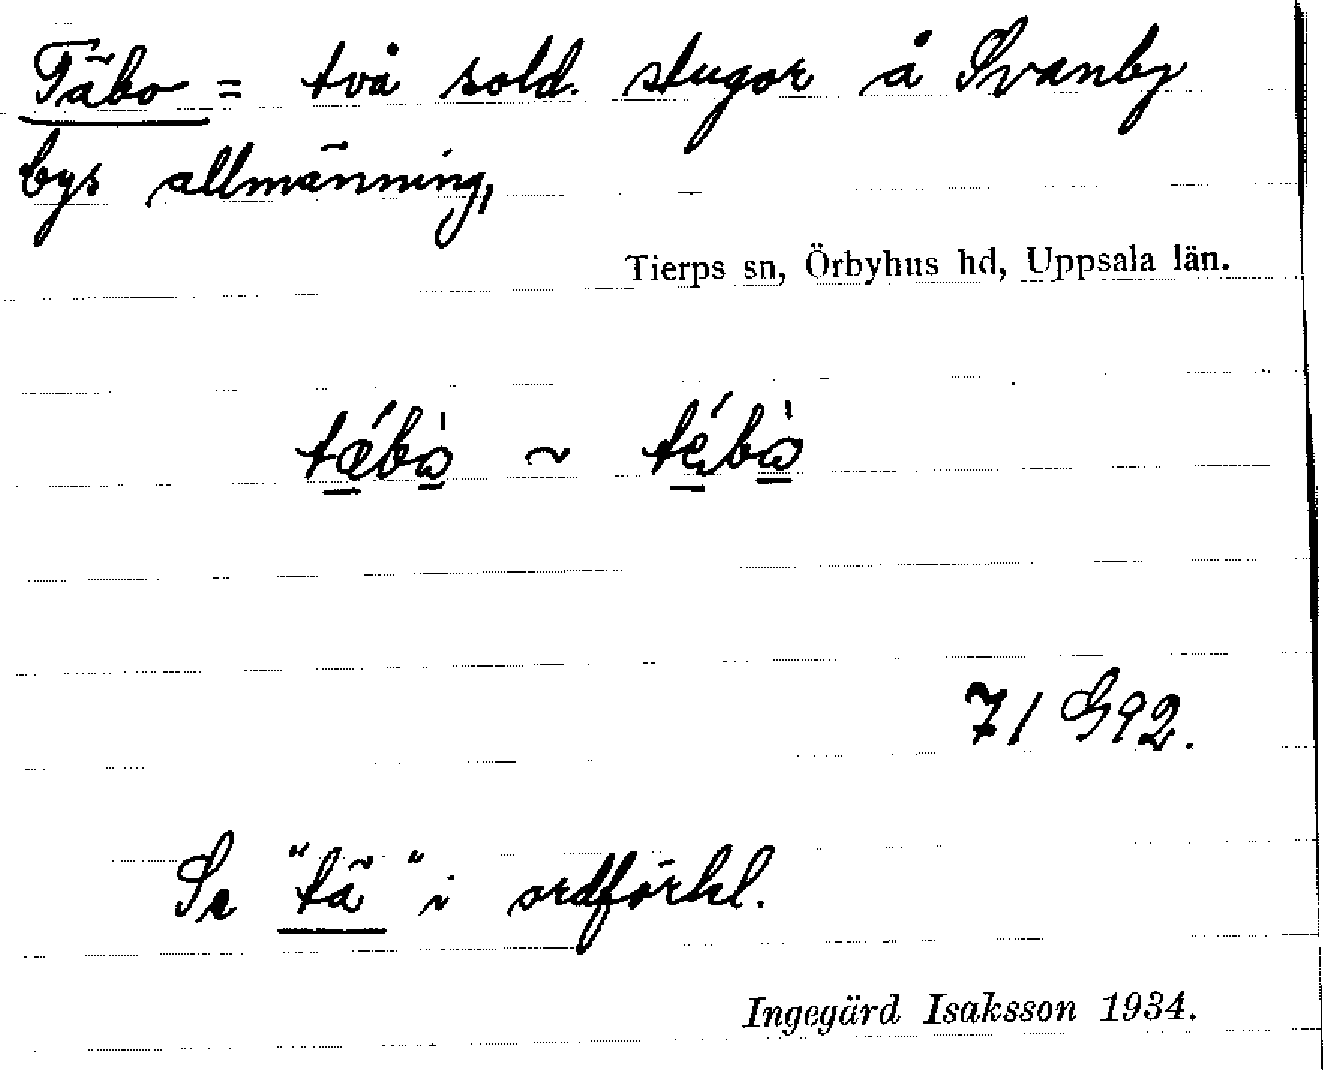 Täbo = två sold. stugor å Svanby
bys allmänning,
Tierps sn, Örbyhus hd, Uppsala län.
tǽbà̱ ~ tébà̱
71 G92.
Se "tä" i ordförkl.
Ingegärd Isaksson 1934.